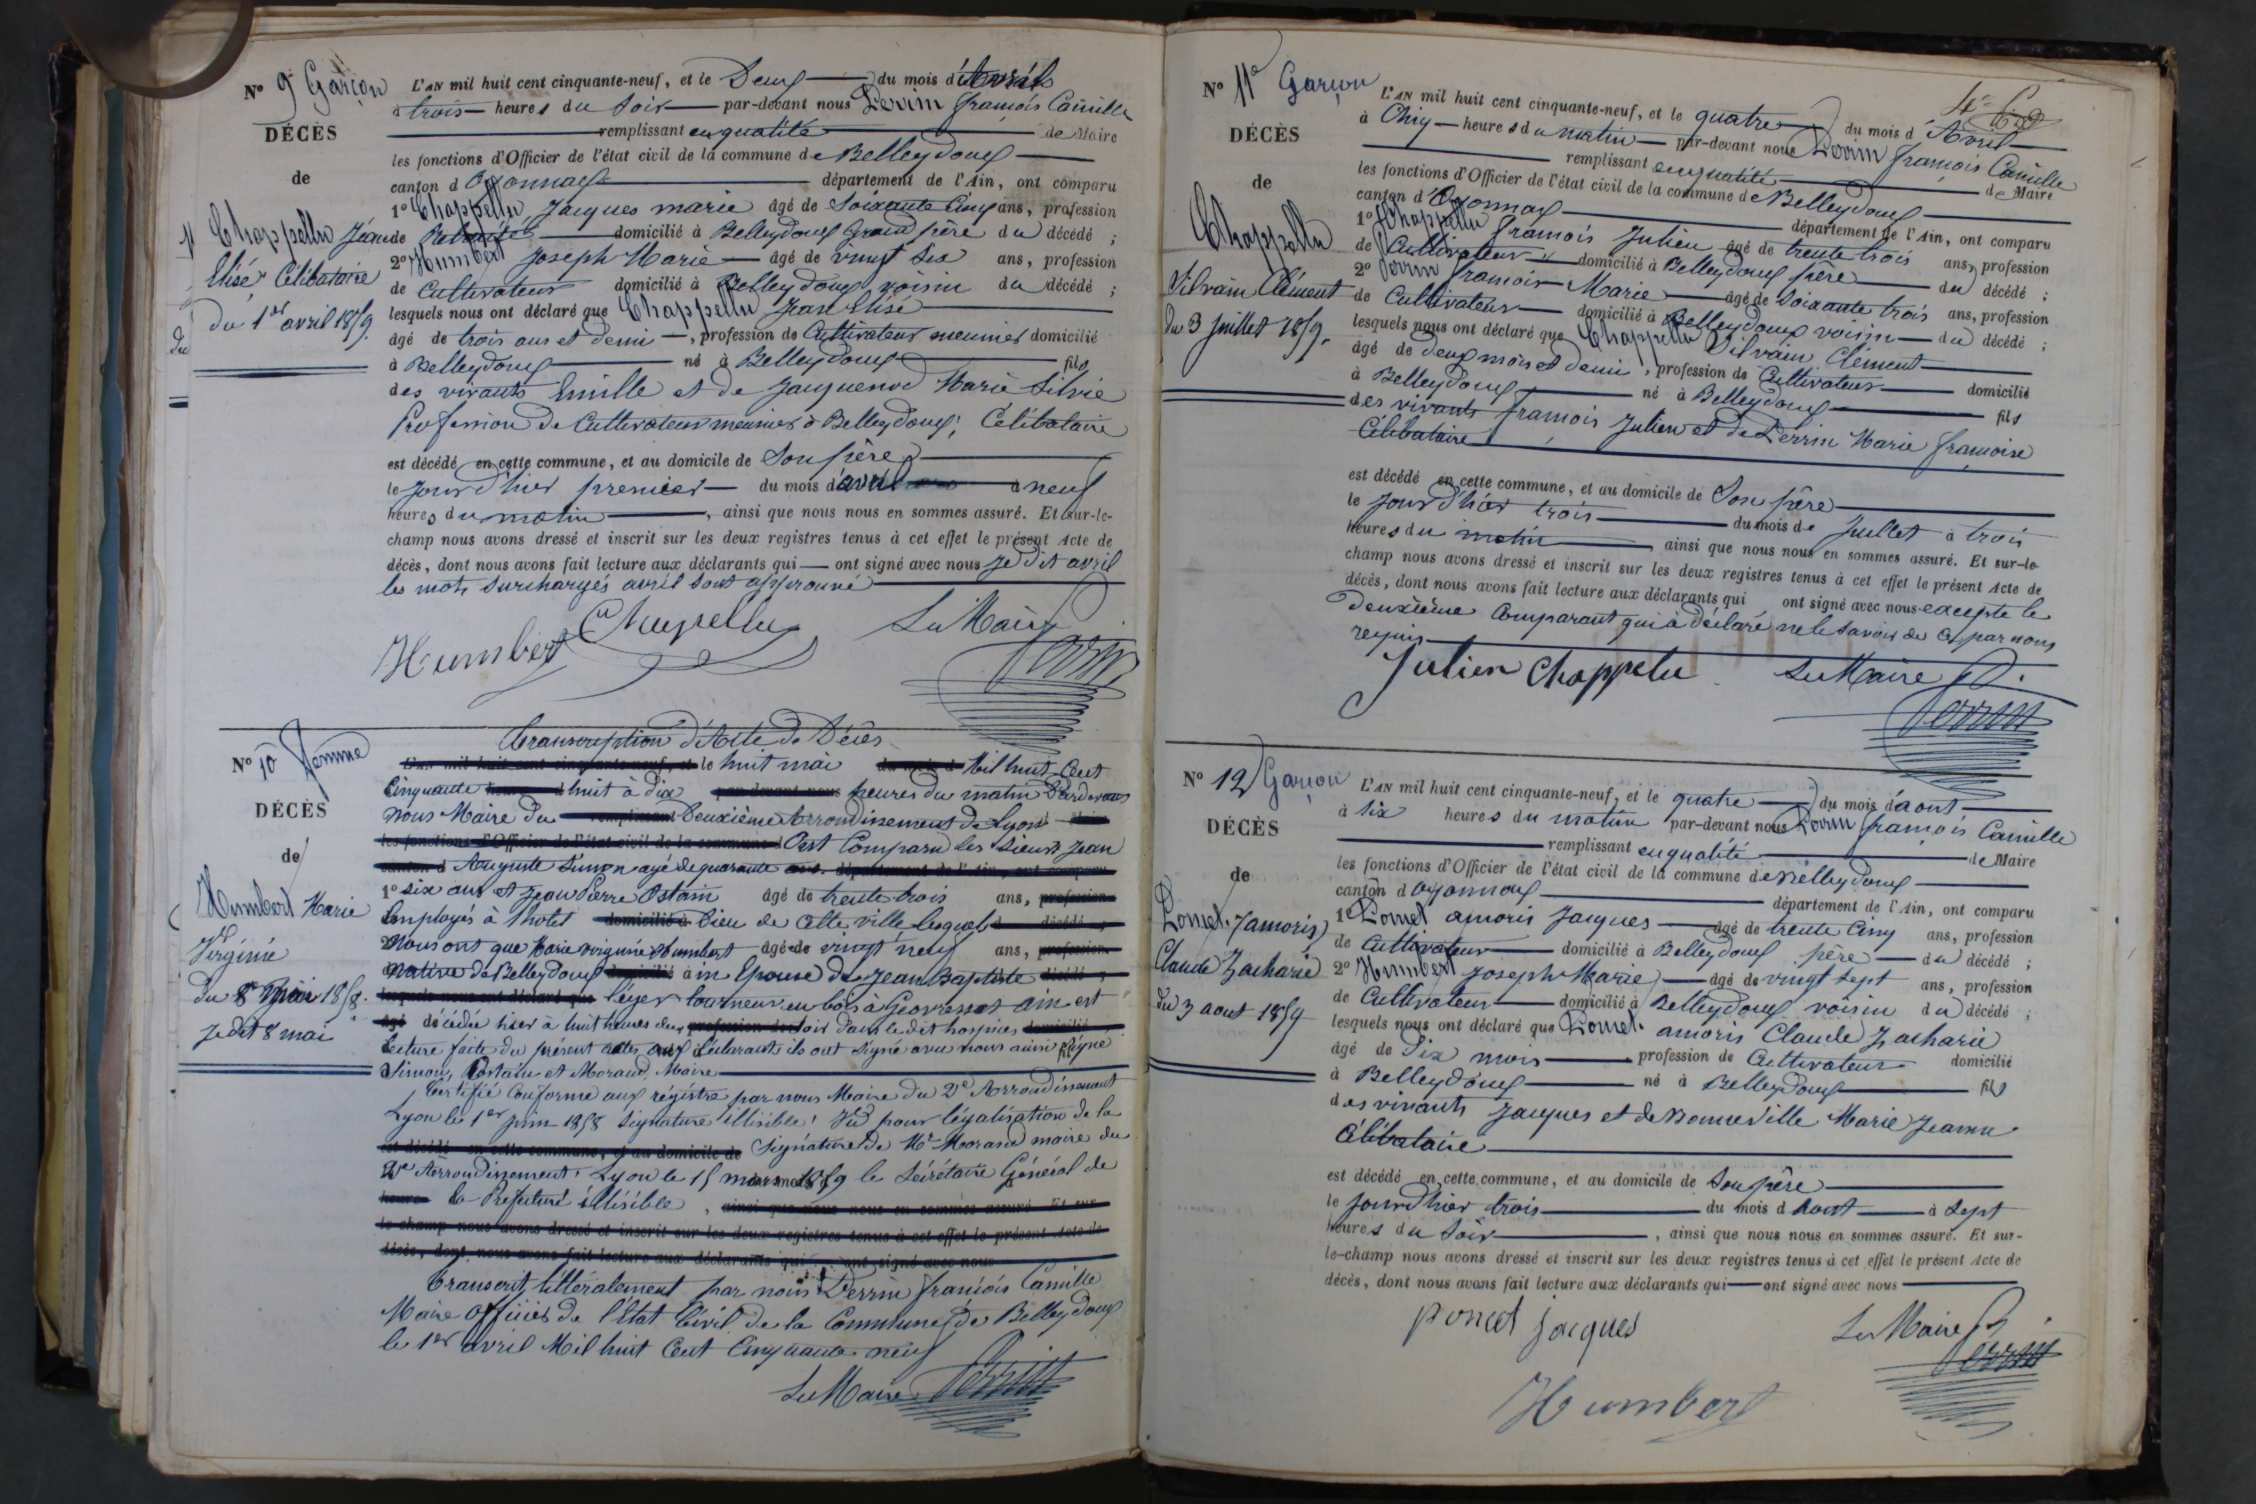 N° 9 Garçon
DÉCÈS
de
Chappellu Jean
Elisé Célibataire
du 1er avril 1859.
L'AN mil huit cent cinquante-neuf, et le Deux du mois d'Avril
à trois heures du Soir par-devant nous Perrin françois Camille
remplissant en qualité de Maire
les fonctions d'Officier de l'état civil de la commune de Belleydoux
canton d'Oyonnax département de l'Ain, ont comparu
1° Chappellu Jacques marie âgé de Soixante Cinq ans, profession
de domicilié à Belleydoux Grand père du décédé ;
2° Humbert Joseph Marie âgé de vingt Six ans, profession
de Cultivateur domicilié à Belleydoux voisin du décédé ;
lesquels nous ont déclaré que Chappellu Jean Elisé
âgé de trois ans et demi, profession de Cultivateur meunier domicilié
à Belleydoux né à Belleydoux fils
des vivants Emille et de Jacquenod Marie Silvie
Profession de Cultivateur meunier à Belleydoux, Célibataire
est décédé en cette commune, et au domicile de Son père
le Jour d'hier premier du mois d'avril à neuf
heures du matin, ainsi que nous nous en sommes assuré. Et sur-le-
champ nous avons dressé et inscrit sur les deux registres tenus à cet effet le présent Acte de
décès, dont nous avons fait lecture aux déclarants qui ont signé avec nous Je dit avril
les mots surchargés avril sont approuvé
Humbert Chappellu Le Maire
Perrin
N° 10 Femme
DÉCÈS
de
Humbert Marie
Virginie
du 8 mai 1858.
Je dit 8 mai
Transcription d'Acte de Décès
le huit mai Mil huit Cent
Cinquante huit à dix heures du matin Pardevant
nous Maire du Deuxième Arrondissement de Lyon
Ont Comparu les Sieurs Jean
Auguste Simon agé de quarante
1° six ans et Jean Pierre Ostain âgé de trente trois ans,
Employés à l'hotel Dieu de Cette ville lesquels
Nous ont que Marie virginie Humbert âgé de vingt neuf ans,
Native de Belleydoux ain Epouse de Jean Baptiste
léger tourneur en bois à Geovresset ain est
décédée hier à huit heures du soir dans le dit hospice
Lecture faite du présent acte aux déclarants ils ont signé avec nous ainsi signé
Simon, Ostain et Morand Maire
Certifié Conforme aux régistre par nous Maire du 2e Arrondissement
Lyon le 1er juin 1858 Signature illisible! Vu pour légalisation de la
Signature de Mr Morand maire du
2e Arrondissement Lyon le 15 mars 1859 le Sécrétaire Général de
la Prefecture illisible
Transcrit littéralement par nous Perrin françois Camille
Maire Officier de l'Etat Civil de la Commune de Belleydoux
le 1er avril Mil huit Cent Cinquante neuf
Le Maire Perrin
N° 11e Garçon
DÉCÈS
de
Chappellu
Silvain Clément
du 3 Juillet 1859.
L'AN mil huit cent cinquante-neuf, et le quatre du mois d'Avril
à Cinq heures du matin par-devant nous Perrin françois Camille
remplissant en qualité de Maire
les fonctions d'Officier de l'état civil de la commune de Belleydoux
canton d'Oyonnax département de l'Ain, ont comparu
1° Chappellu françois Julien âgé de trente trois ans, profession
de Cultivateur domicilié à Belleydoux père du décédé ;
2° Perrin françois Marie âgé de Soixante trois ans, profession
de Cultivateur domicilié à Belleydoux voisin du décédé ;
lesquels nous ont déclaré que Chappellu Silvain Clément
âgé de deux mois et demi, profession de Cultivateur domicilié
à Belleydoux né à Belleydoux fils
des vivants françois Julien et de Perrin Marie françoise
Célibataire
est décédé en cette commune, et au domicile de Son père
le Jour d'hier trois du mois de Juillet à trois
heures du matin, ainsi que nous nous en sommes assuré. Et sur-le-
champ nous avons dressé et inscrit sur les deux registres tenus à cet effet le présent Acte de
décès, dont nous avons fait lecture aux déclarants qui ont signé avec nous excepté le
deuxième Comparant qui à déclaré ne le savoir de ce par nous
requis
Julien Chappelu Le Maire
Perrin
N° 12 Garçon
DÉCÈS
de
Poncet. Jamoris
Claude Zacharie
du 3 aout 1859
L'AN mil huit cent cinquante-neuf, et le quatre du mois d'aout
à Six heures du matin par-devant nous Perrin françois Camille
remplissant en qualité de Maire
les fonctions d'Officier de l'état civil de la commune de Belleydoux
canton d'oyonnax département de l'Ain, ont comparu
1° Poncet amoris Jacques âgé de trente Cinq ans, profession
de Cultivateur domicilié à Belleydoux père du décédé ;
2° Humbert Joseph Marie âgé de vingt Sept ans, profession
de Cultivateur domicilié à Belleydoux voisin du décédé ;
lesquels nous ont déclaré que Poncet. amoris Claude Zacharie
âgé de Dix mois profession de Cultivateur domicilié
à Belleydoux né à Belleydoux fils
des vivants Jacques et de Bonneville Marie Jeanne
Célibataire
est décédé en cette commune, et au domicile de Son père
le jour d'hier trois du mois d'Aout à Sept
heures du Soir, ainsi que nous nous en sommes assuré. Et sur-
le-champ nous avons dressé et inscrit sur les deux registres tenus à cet effet le présent Acte de
décès, dont nous avons fait lecture aux déclarants qui ont signé avec nous
poncet jacques Le Maire
Perrin
Humbert